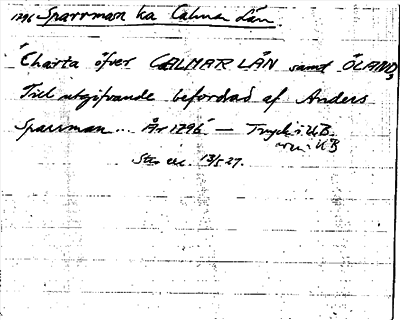 1796 Sparrman ka Calmar län.
"Charta öfver CALMAR LÄN samt ÖLAND,
Till utgifvande befordrad af Anders
Sparrman... År 1796" — Tryck i UB.
i KB
Sten 13/5 27.